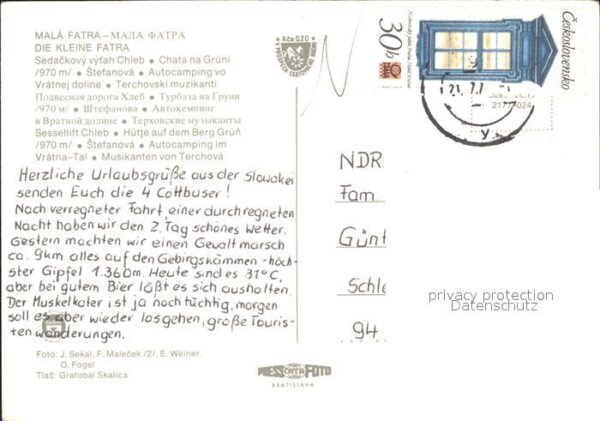 MALÁ FATRA – МАЛА ФАТРА
DIE KLEINE FATRA
Sedačkový výťah Chleb • Chata na Grúni
/970 m/ • Štefanová • Autocamping vo
Vrátnej doline • Terchovski muzikanti
Подвесная дорога Хлеб • Турбаза на Груни
/970 м/ • Штефанова • Автокемпинг
в Вратной долине • Терховские музыканты
Sessellift Chleb • Hütte auf dem Berg Grúň
/970 m/ • Štefanová • Autocamping im
Vrátna-Tal • Musikanten von Terchová
Herzliche Urlaubsgrüße aus der Slowakei
senden Euch die 4 Cottbuser!
Nach verregneter Fahrt einer durchregneten
Nacht haben wir den 2. Tag schönes Wetter.
Gestern machten wir einen Gewaltmarsch
ca. 9km alles auf den Gebirgskämmen - höch-
ster Gipfel 1.360m. Heute sind es 31°C,
aber bei gutem Bier läßt es sich aushalten.
Der Muskelkater ist ja noch tüchtig, morgen
soll es aber wieder losgehen, große Touris-
ten wanderungen.
Foto: J. Sekal, F. Maleček /2/, E. Weiner.
O. Fogel
Tlač: Grafobal Skalica
Kčs 0,20
PRESSFOTO
BRATISLAVA
30h
Československo
NDR
Fam.
Günt
Schle
94
privacy protection
Datenschutz